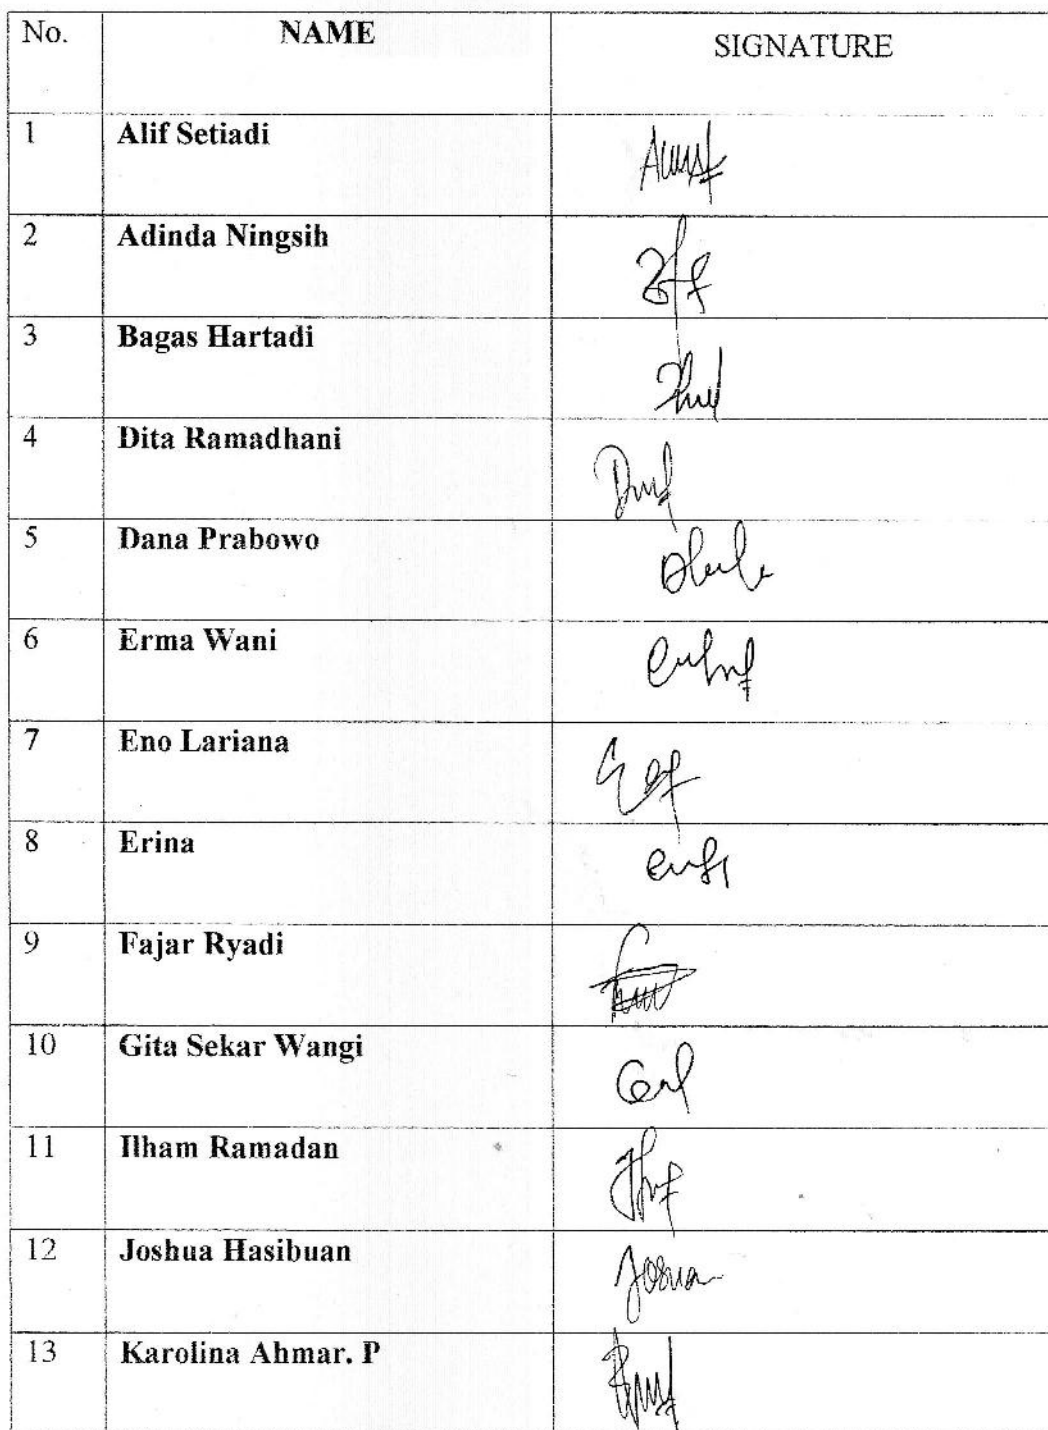 No. NAME SIGNATURE
1 Alif Setiadi
2 Adinda Ningsih
3 Bagas Hartadi
4 Dita Ramadhani
5 Dana Prabowo
6 Erma Wani
7 Eno Lariana
8 Erina
9 Fajar Ryadi
10 Gita Sekar Wangi
11 Ilham Ramadan
12 Joshua Hasibuan Josua
13 Karolina Ahmar. P